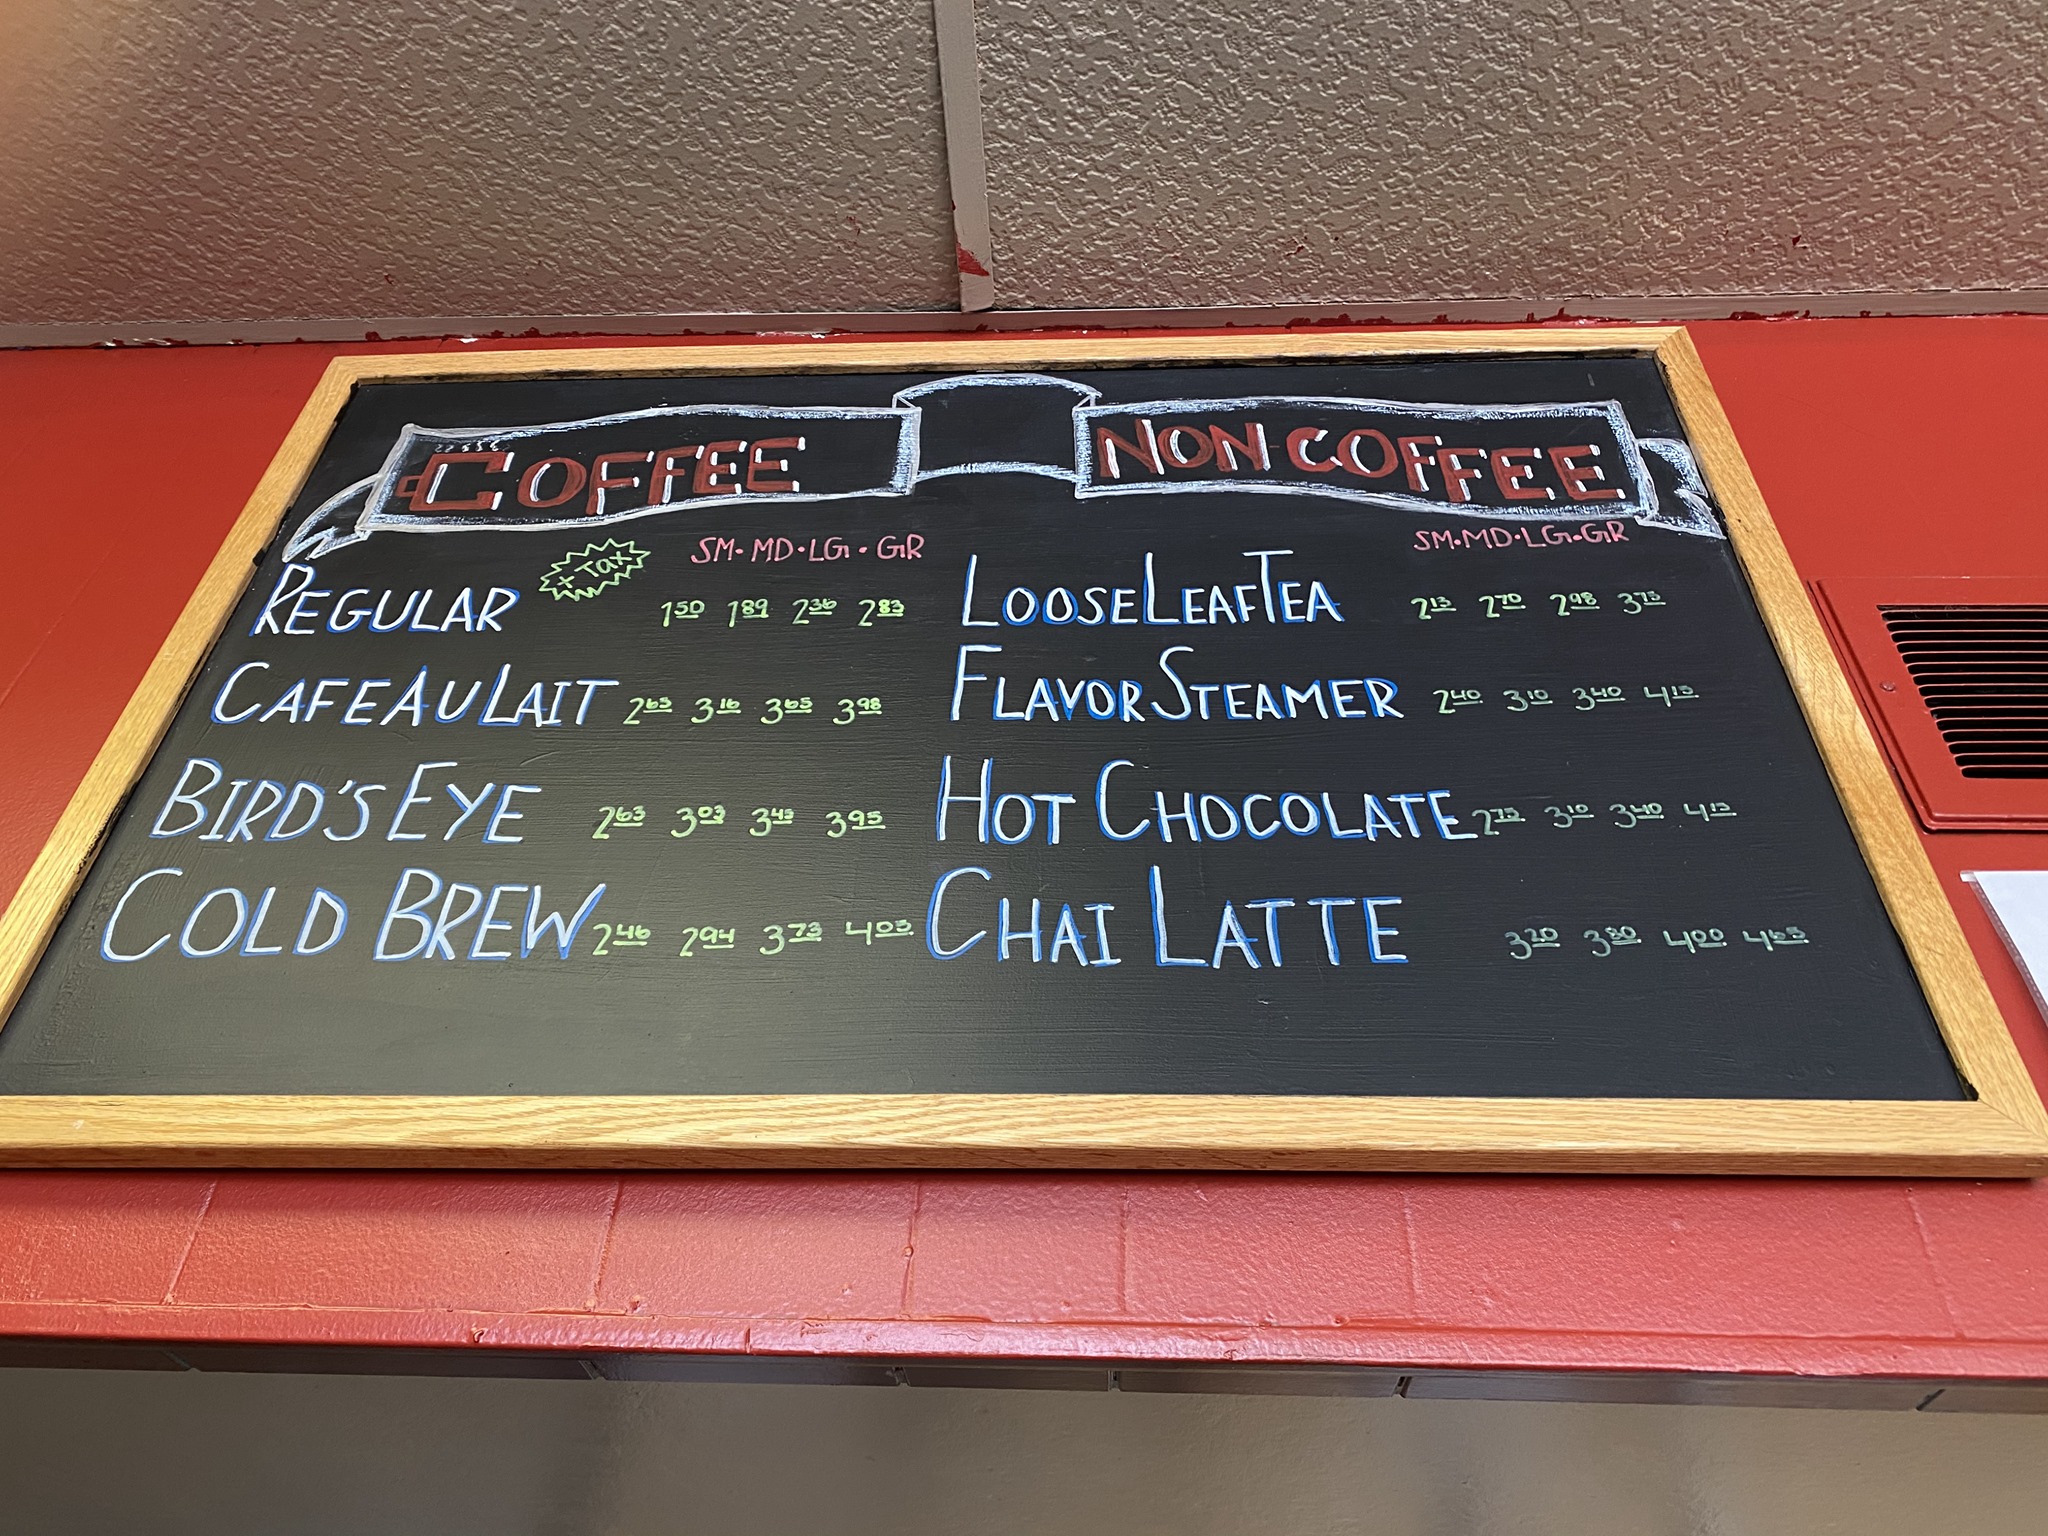 COFFEE
+ Tax
SM • MD • LG • GR
REGULAR 1.50 1.89 2.36 2.83
CAFE AU LAIT 2.65 3.16 3.65 3.98
BIRD'S EYE 2.63 3.03 3.43 3.95
COLD BREW 2.46 2.94 3.73 4.05
NON-COFFEE
SM • MD • LG • GR
LOOSE LEAF TEA 2.15 2.70 2.98 3.75
FLAVOR STEAMER 2.40 3.10 3.40 4.15
HOT CHOCOLATE 2.75 3.10 3.40 4.15
CHAI LATTE 3.20 3.80 4.00 4.65